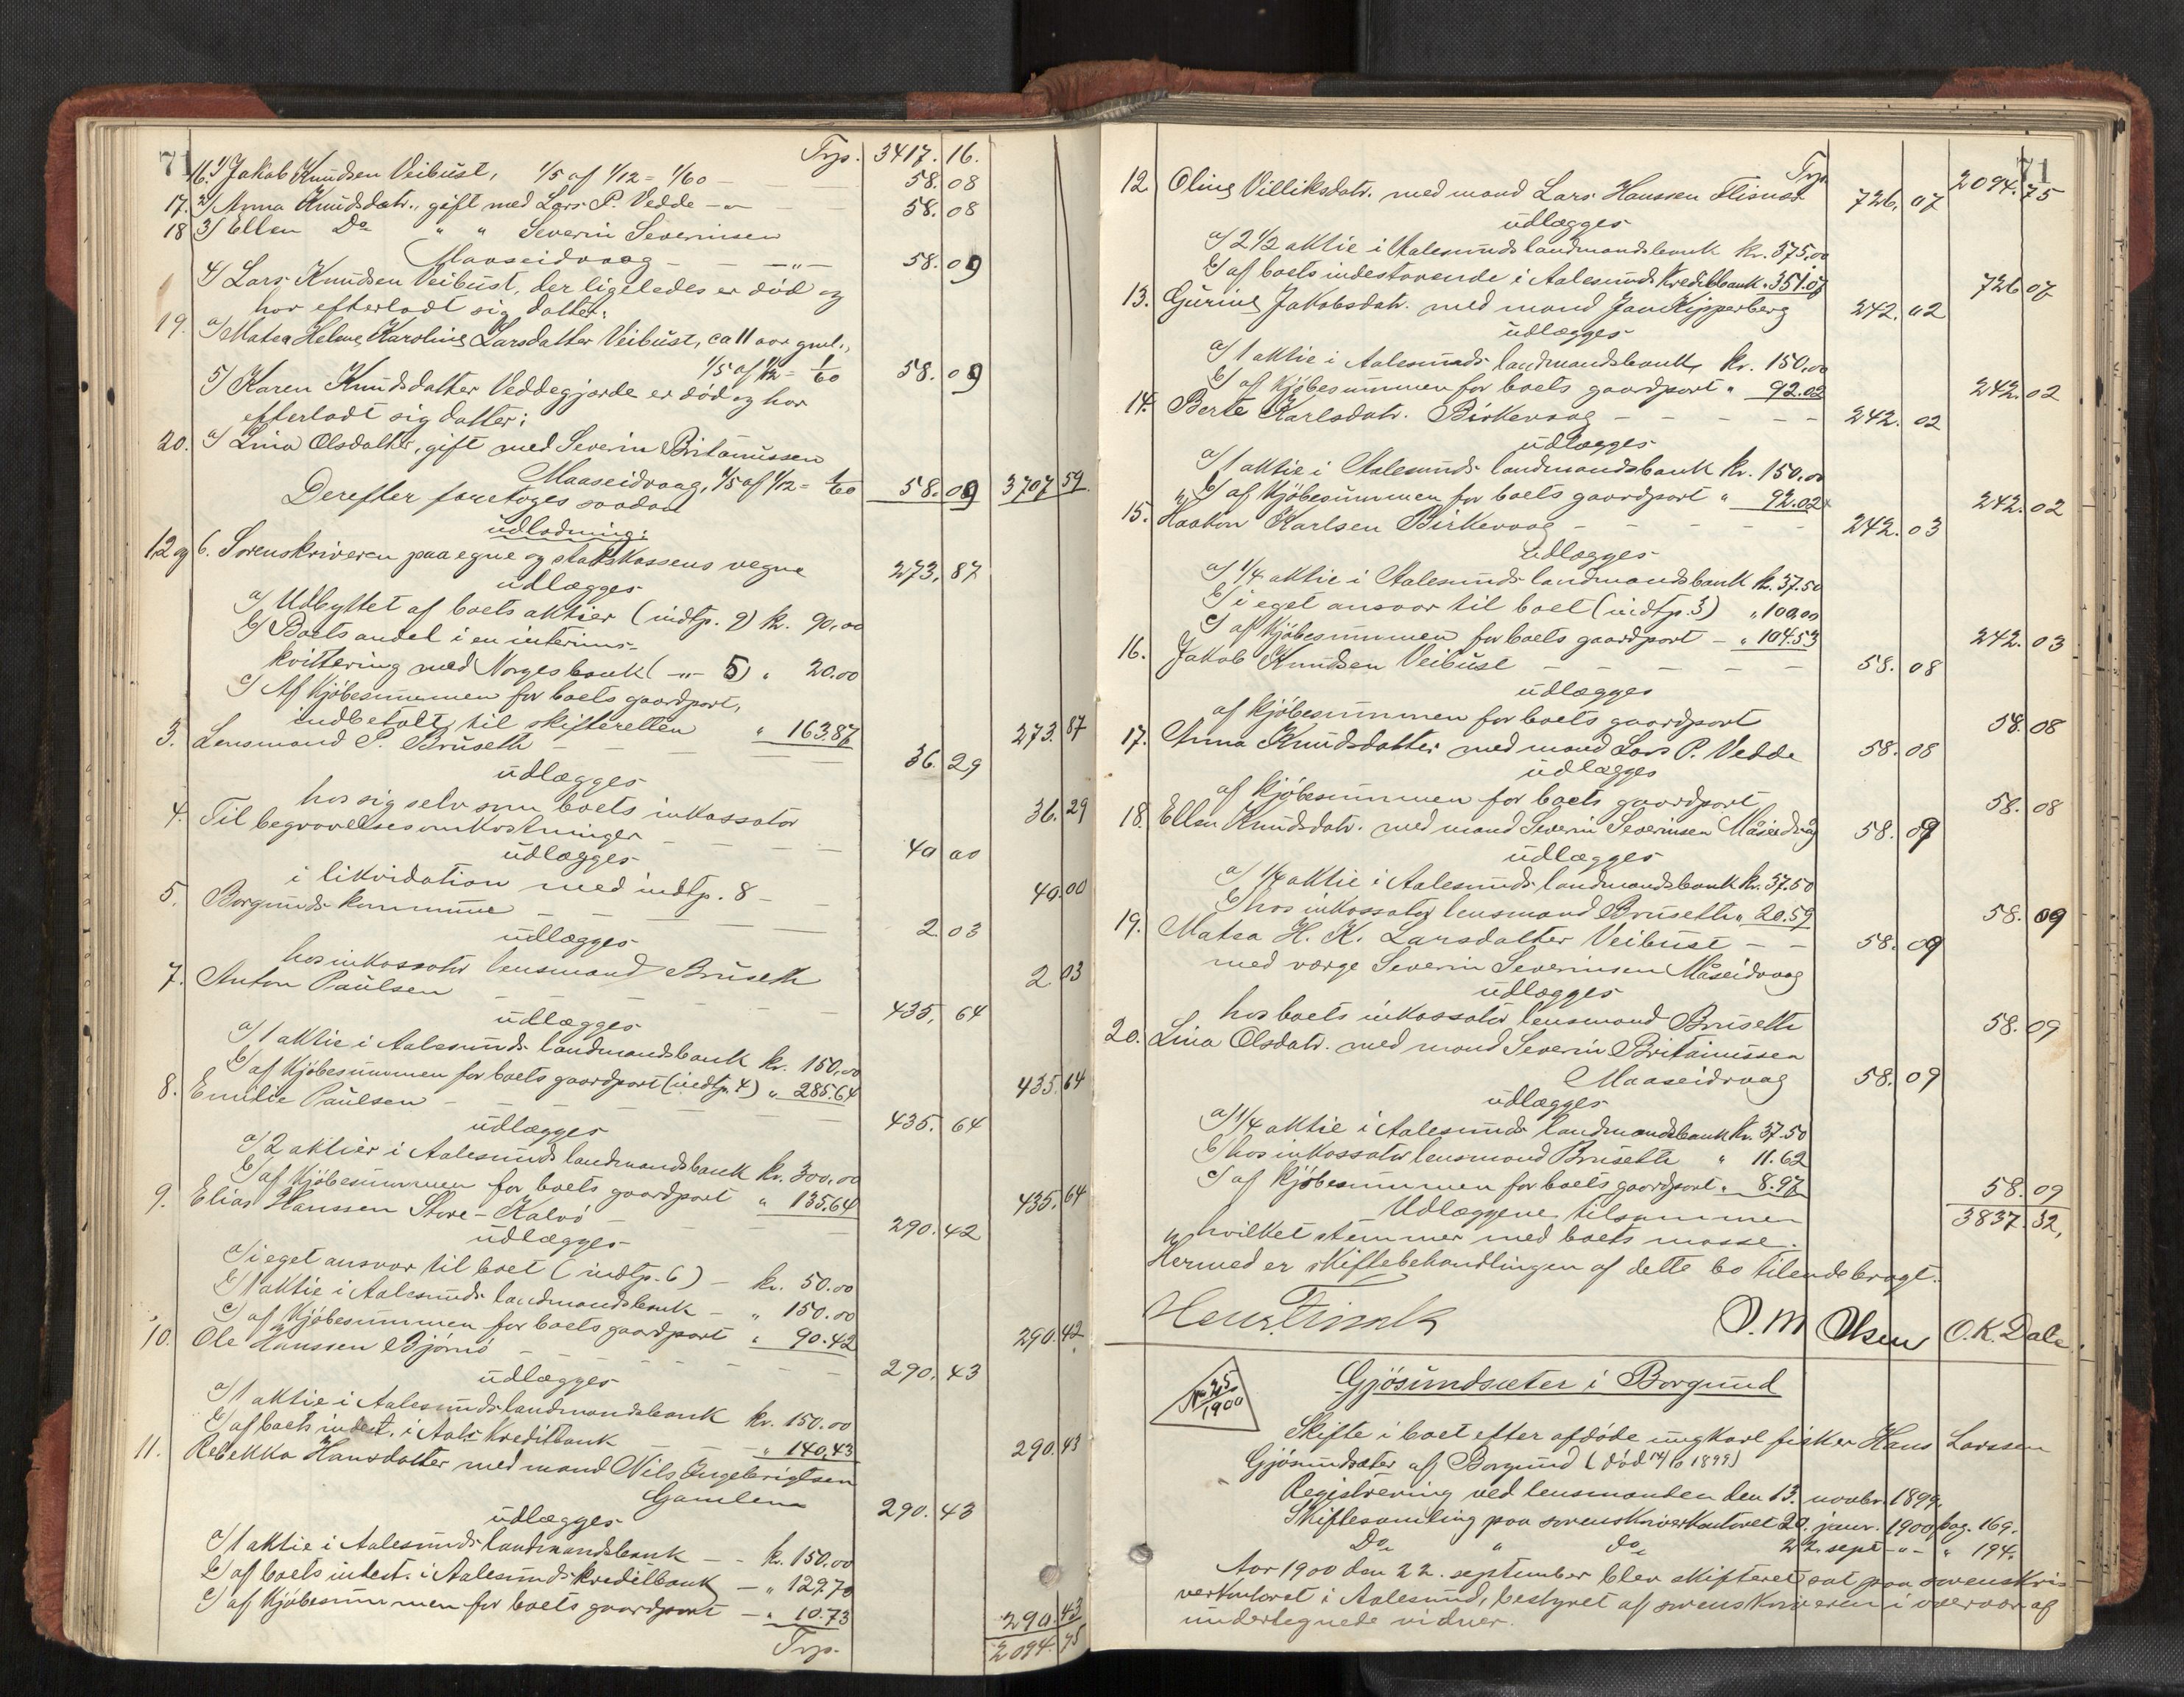 71
Trp. 3417. 16.
16. 1) Jakob Knudsen Veibust, 1/5 af 1/12 = 1/60 — 58. 08
17. 2) Anna Knudsdatr., gift med Lars P. Vedde —"— 58. 08
18 3) Ellen Do " " Severin Severinsen
Maaseidvaag — — —"— 58. 09
4) Lars Knudsen Veibust, der ligeledes er död og
har efterladt sig datter:
19. a) Matea Helene Karoline Larsdatter Veibust, ca 11 aar gml.,
1/5 af 1/12 = 1/60 58. 09
5) Karen Knudsdatter Veddegjerde er död og har
efterladt sig datter:
20. a) Lina Olsdatter, gift med Severin Britanussen
Maaseidvaag, 1/5 af 1/12 = 1/60 58. 09 3707 59.
Derefter foretoges saadan
udlodning:
1 2 og 6. Sorenskriveren paa egne og statskassens vegne 273. 87
udlægges
a) Udbyttet af boets aktier (indtp. 9) kr. 90.00
b) Boets andel i en interims-
kvittering med Norges bank ( —"— 5) " 20.00
c) Af kjöbesummen for boets gaardport,
indbetalt til skifteretten " 163.87 273. 87
3. Lensmand P. Bruseth — — — 36. 29
udlægges
hos sig selv som boets inkassator 36. 29
4. Til begravelsesomkostninger — — — 40 00
udlægges
i likvidation med indtp. 8 — 40.00
5. Borgunds kommune — — — 2 03
udlægges
hos inkassator lensmand Bruseth 2. 03
7. Anton Paulsen — — — 435. 64
udlægges
a) 1 aktie i Aalesunds landmandsbank kr. 150.00
b) af kjöbesummen for boets gaardport (indtp. 4) " 285.64 435 64
8. Emilie Paulsen — — — 435. 64
udlægges
a) 2 aktier i Aalesunds landmandsbank kr. 300.00
b) af kjöbesummen for boets gaardport " 135.64 435. 64
9. Elias Hanssen Store-Kalvö — — 290. 42
udlægges
a) i eget ansvar til boet (indtp. 6) — kr. 50.00
b) 1 aktie i Aalesunds landmandsbank — " 150.00
c) af kjöbesummen for boets gaardport " 90.42 290. 42
10. Ole Hanssen Bjørnö — — — 290. 43
udlægges
a) 1 aktie i Aalesunds landmandsbank kr. 150.00
b) af boets indest. i Aals. Kreditbank — — " 140.43 290. 43
11. Rebekka Hansdatter med mand Nils Engebrigtsen
Gamlem 290. 43
udlægges
a) 1 aktie i Aalesunds landmandsbank — — kr. 150.00
b) af boets indest. i Aalesunds kreditbank — " 129.70
c) af kjöbesummen for boets gaardport — " 10.73 290. 43
Trp. 2094. 75
71
Trp. 2094. 75
12 Oline Villiksdatr. med mand Lars Hanssen Flisnes 726. 07
udlægges
a) 2 1/2 aktie i Aalesunds landmandsbank kr. 375.00
b) af boets indestaaende i Aalesunds kreditbank " 351.07 726 07
13. Gurine Jakobsdatr. med mand Jan Kipperberg 242. 02
udlægges
a) 1 aktie i Aalesunds landmandsbank kr. 150.00
b) af kjöbesummen for boets gaardport " 92.02 242. 02
14. Berte Karlsdatr. Birkevaag — — — — 242. 02
udlægges
a) 1 aktie i Aalesunds landmandsbank kr. 150.00
b) af kjöbesummen for boets gaardport " 92.02 242. 02
15. Haakon Karlsen Birkevaag — — — — 242. 03
udlægges
a) 1/4 aktie i Aalesunds landmandsbank kr. 37.50
b) i eget ansvar til boet (indtp. 3) " 100.00
c) af kjöbesummen for boets gaardport — " 104.53 242. 03
16. Jakob Knudsen Veibust — — — — 58. 08
udlægges
af kjöbesummen for boets gaardport 58. 08
17. Anna Knudsdatter med mand Lars P. Vedde 58. 08
udlægges
af kjöbesummen for boets gaardport 58. 08
18. Ellen Knudsdatr. med mand Severin Severinsen Måseidvåg 58. 09
udlægges
a) 1/4 aktie i Aalesunds landmandsbank kr. 37.50
b) hos inkassator lensmand Bruseth " 20.59 58. 09
19. Matea H. K. Larsdatter Veibust — — 58. 09
med værge Severin Severinsen Måseidvaag
udlægges
hos boets inkassator lensmand Bruseth 58. 09
20. Lina Olsdatr. med mand Severin Britanussen
Maaseidvaag 58. 09
udlægges
a) 1/4 aktie i Aalesunds landmandsbank kr. 37.50
b) hos inkassator lensmand Bruseth " 11.62
c) af kjöbesummen for boets gaardport " 8.97 58. 09
Udlæggene tilsammen 3837. 32,
hvilket stemmer med boets masse.
Hermed er skiftebehandlingen af dette bo tilendebragt.
O. M Olsen O. K. Dale
No 25/1900
Gjösundsæter i Borgund
Skifte i boet efter afdöde ungkarl fisker Hans Larssen
Gjösundsæter af Borgund (död 14/6 1899)
Registrering ved lensmanden den 13. novbr. 1899.
Skiftesamling paa sorenskriverkontoret 20. janr. 1900 pag. 169.
Do " do 22. sept —"— " 194.
Aar 1900 den 22. september blev skifteret sat paa sorenskri-
verkontoret i Aalesund, bestyret af sorenskriveren i overvær af
undertegnede vidner.